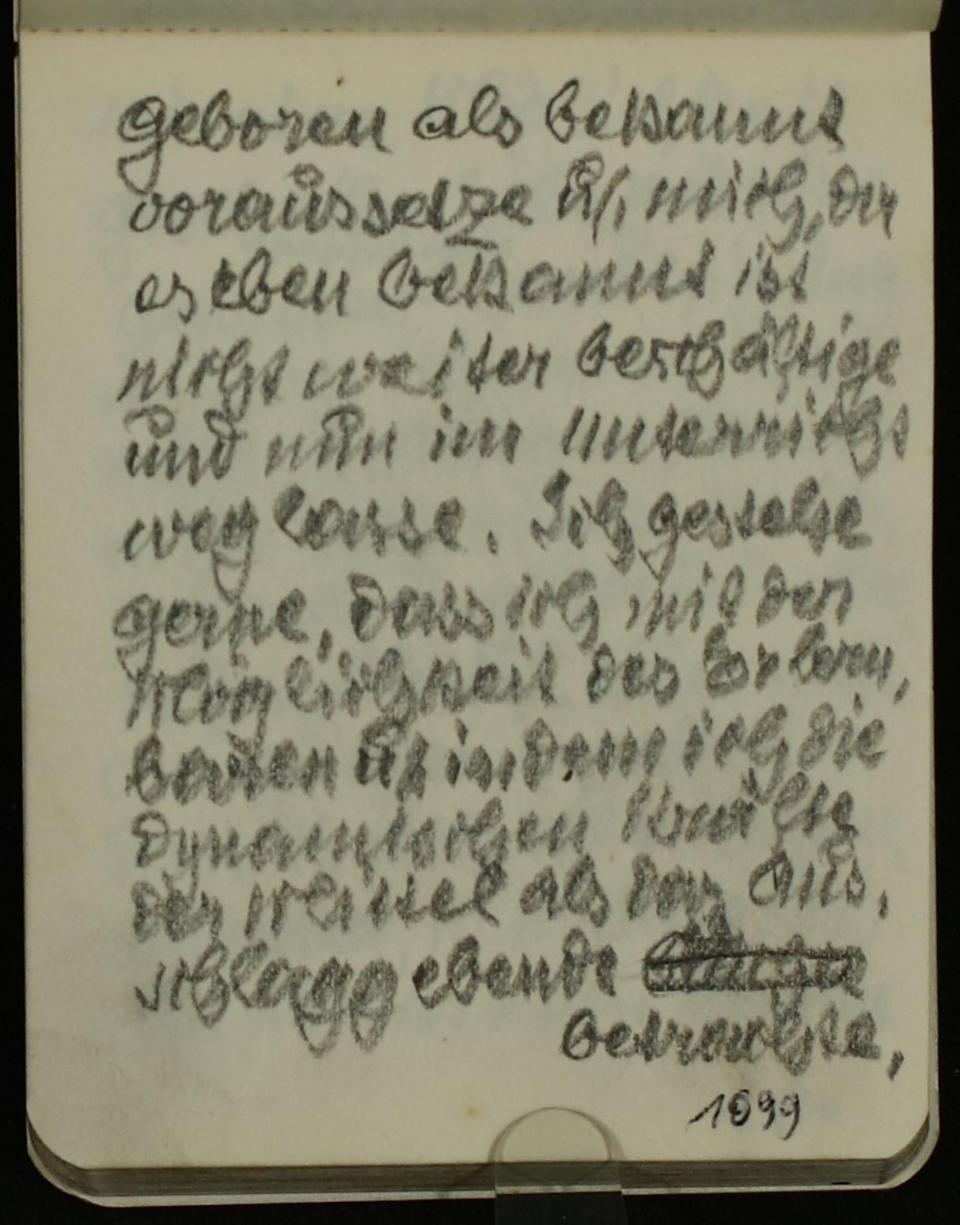 geboren als bekannt
voraussetze u/ mich, da
es eben bekannt ist
nicht weiter beschäftige
und nun im Unterricht
weg lasse. Ich gestehe
gerne, dass ich mit der
Möglichkeit des Erlern,
baren u/ indem ich die
dynamischen Kräfte
der Mittel als das Aus,
schlaggebende
betrachte,
1099